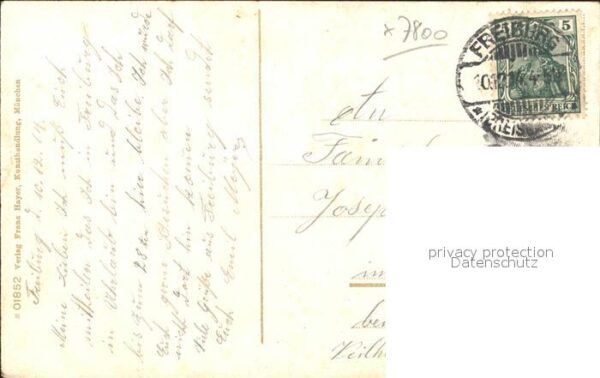 x 7800
FREIBURG
10.12.14.4-5N
*(BREISG
5
REICH
An
Fami
Josep
im
be
privacy protection
Datenschutz
# 01852 Verlag Franz Hayer, Kunsthandlung, München
Freiburg d. 10.12.14.
Meine Lieben Ich muß Euch
mitteilen das Ich in Freiburg
in Uhrlaub bin und das Ich
bis zum 28ten hier bleibe. Ich würde
Euch gerne
nicht dort hin komen
Viele Grüße aus Freiburg sendet
Euch Emil Meyer